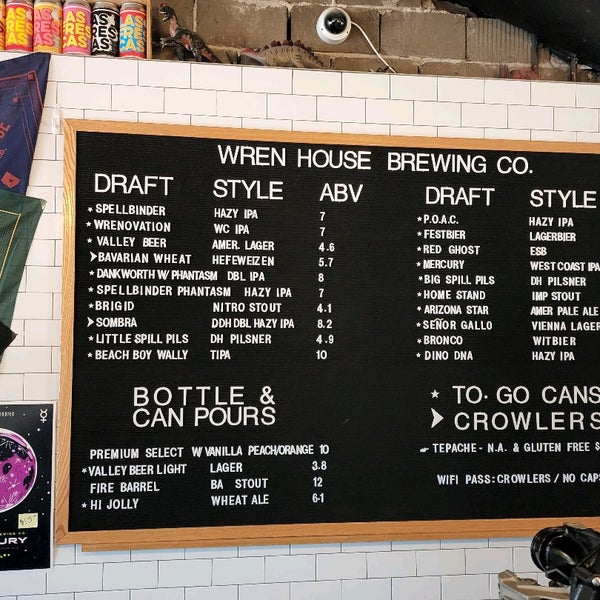 WREN HOUSE BREWING CO.
DRAFT STYLE ABV
★ SPELLBINDER HAZY IPA 7
★ WRENOVATION WC IPA 7
★ VALLEY BEER AMER. LAGER 4.6
➤ BAVARIAN WHEAT HEFEWEIZEN 5.7
★ DANKWORTH W/ PHANTASM DBL IPA 8
★ SPELLBINDER PHANTASM HAZY IPA 7
★ BRIGID NITRO STOUT 4.1
➤ SOMBRA DDH DBL HAZY IPA 8.2
★ LITTLE SPILL PILS DH PILSNER 4.9
★ BEACH BOY WALLY TIPA 10
BOTTLE &
CAN POURS
PREMIUM SELECT W VANILLA PEACH/ORANGE 10
★ VALLEY BEER LIGHT LAGER 3.8
FIRE BARREL BA STOUT 12
★ HI JOLLY WHEAT ALE 6.1
DRAFT STYLE
★ P.O.A.C. HAZY IPA
★ FESTBIER LAGERBIER
★ RED GHOST ESB
★ MERCURY WEST COAST IPA
★ BIG SPILL PILS DH PILSNER
★ HOME STAND IMP STOUT
★ ARIZONA STAR AMER PALE ALE
★ SEÑOR GALLO VIENNA LAGER
★ BRONCO WITBIER
★ DINO DNA HAZY IPA
★ TO-GO CANS
➤ CROWLERS
☛ TEPACHE - N.A. & GLUTEN FREE $
WIFI PASS: CROWLERS / NO CAPS
URY